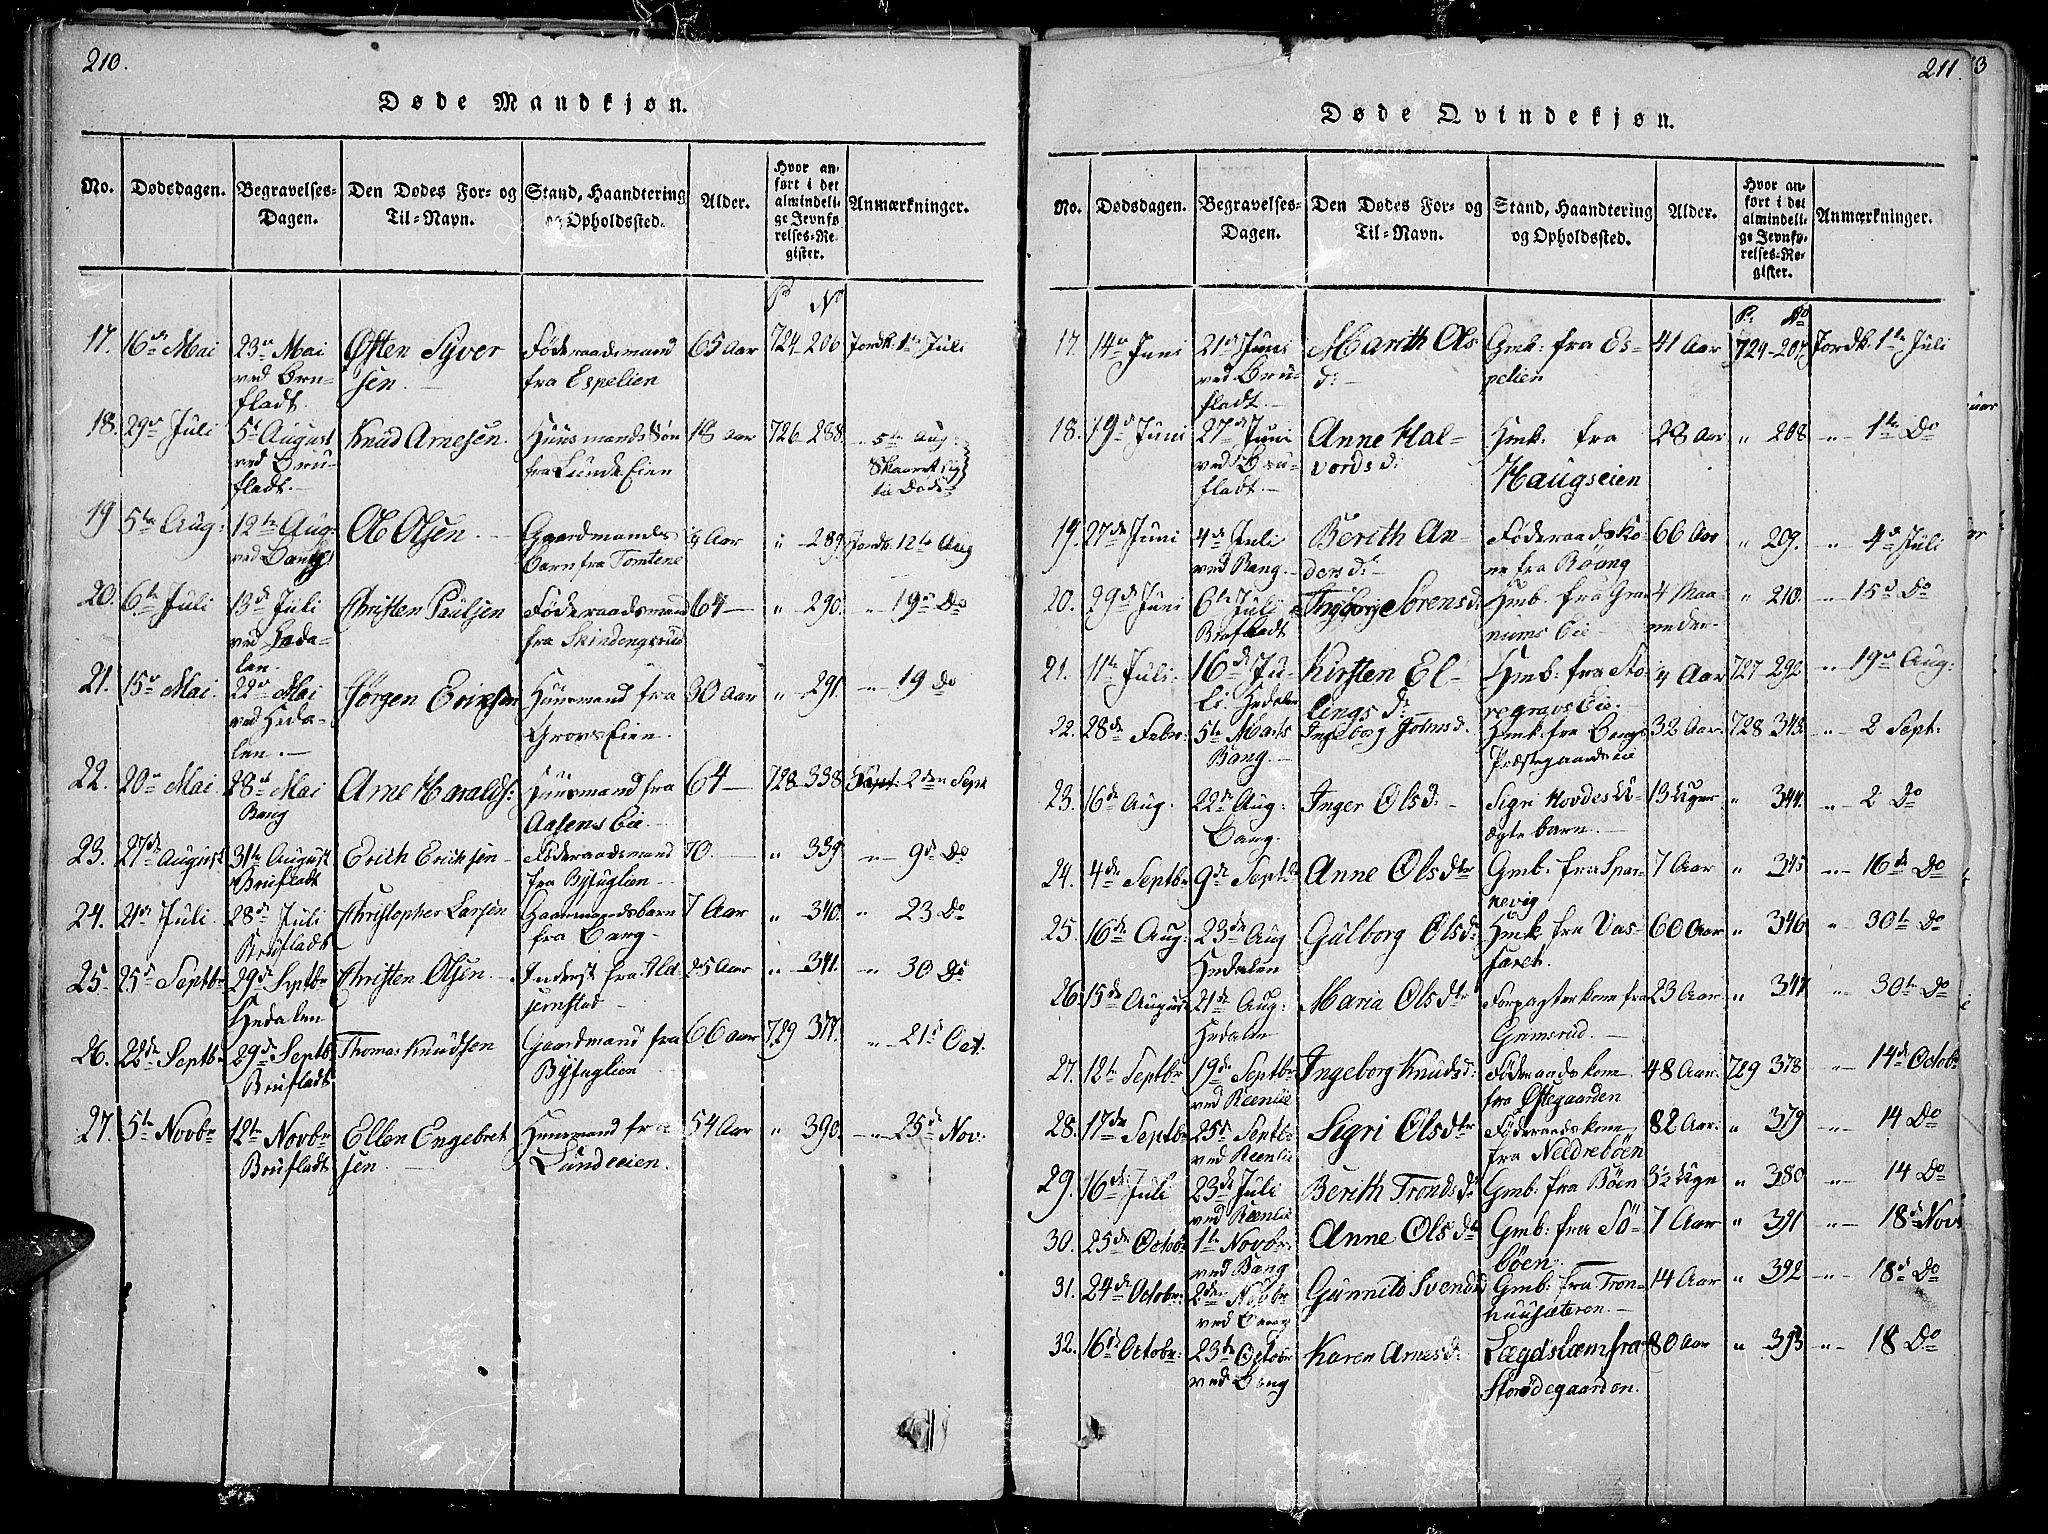 210.
Døde Mandkjøn.
No. Dødsdagen. Begravelses-Dagen. Den Dødes For- og Til-Navn. Stand, Haandtering og Opholdssted. Alder. Hvor anført i det almindelige Jevnførelses-Register. Anmærkninger.
P. No
17. 16de Mai 23de Mai Østen Syver 65 Aar 724 206 Jordk. 1te Juli
ved Bru- sen. fra Espelien
fladt.
18. 29de Juli 5te August Knud Arnesen. Huusmands Søn 18 Aar 726. 288. 5te Aug:
ved Bru- fra Lunde Eien Skaaret sig
fladt. til Døde
19 5te Aug: 12te Aug: Ole Olsen. Gaardmands 9 Aar " 289. Jordk. 12te Aug
ved Bang barn fra Tomtene
20. 6te Juli 13de Juli Christen Paulsen Føderaadsmand 64 " 290. " 19de Do
ved Heda- fra Skindengsrud
len.
21. 15de Mai. 22de Mai Jørgen Eriksen Huusmand fra 30 Aar " 291. " 19 Do
ved Heda- Grovs Eien.
len.
22. 20de Mai 28de Mai Arne Haralds: Huusmand fra 64 728 338 2den Sept
Bang Aasens Eie.
23. 27de August 31te August Erich Erichsen Føderaadsmand 70. " 339 " 9de Do
Brufladt fra Byfuglien
24. 21de Juli. 28de Juli Christopher Larsen Gaarmandsbarn 7 Aar " 340. " 23 Do
Brufladt fra Bang
25. 25de Septbr 29de Septbr Christen Olsen Inderst fra Ild 25 Aar " 341. " 30 Do
Hedalen jernstad
26. 22de Septbr 29de Septb. Thomas Knudsen Gaardmand fra 66 Aar 729 377. " 21de Oct.
Brufladt Byfuglien
27. 5te Novbr 12te Novbr Ellen Engebret Huusmand fra 54 Aar " 390. " 25de Nov:
Brufladt sen. Lundeeien.
211.
Døde Qvindekjøn.
No. Dødsdagen. Begravelses-Dagen. Den Dødes For- og Til-Navn. Stand, Haandtering og Opholdssted. Alder. Hvor anført i det almindelige Jevnførelses-Register. Anmærkninger.
P. No
17. 14de Juni 21de Juni Marith Ols Gmb: fra Es- 41 Aar 724-207. Jordk. 1te Juli
ved Bru- d: pelien
fladt.
18. 19de Juni 27de Juni Anne Hal- Hmk. fra 28 Aar " 208 " 1te Do
ved Bru- vords d: Haugseien
fladt.
19. 27de Juni 4de Juli Berith An- Føderaadsko- 66 Aar " 209. " 4de Juli
ved Bang. ders d: ne fra Røang
20. 29de Juni 6te Juli Ingborg Sørensd: Hmb. fra Gra 4 Maa " 210. " 15de Do
Brufladt nums Eie neder.
21. 11te Juli. 16de Ju- Kirsten El- Hmb: fra Sto 9 Aar 727 292 " 19de Aug:
li. Hedalen lings d: regravs Eie.
22. 28de Febr: 5te Marts Ingeborg Johnsd. Hmk: fra Bangs 32 Aar. 728 343. " 2 Sept.
Bang. Præstegaards Eie
23. 16de Aug. 22de Aug: Inger Olsd: Sigri Hovdes U- 13 Uger " 344. " 2 Do
Bang. ægte barn.
24. 4de Septbr 9de Septbr Anne Olsdtr Gmb: fra Spar- 7 Aar " 345 " 16de Do
kevig
25. 16de Aug: 23de Aug Gulborg Olsd: Hmk fra Vas- 60 Aar " 346 " 30te Do
Hedalen faret.
26. 15de August 21de Aug: Maria Olsdtr Forpagterkone fra 23 Aar " 347 " 30te Do
Hedalen Grimsrud
27. 12te Septbr 19de Septbr Ingeborg Knudsd: Føderaadskone 48 Aar. 729 378 " 14de Octobr
ved Reenlie fra Østegaarden
28. 17de Septbr 25de Septbr Sigri Olsdtr Føderaadskone 82 Aar. " 379 " 14 Do
ved Reenlie fra Neidrebøen
29. 16de Juli 23de Juli Berith Tronds d: Gmb: fra Bøen 3½ Uge " 380 " 14 Do
ved Reenlie
30. 25de Octobr 1te Novbr: Anne Olsdtr Gmb: fra Sö- 7 Aar " 391 " 18de Nov:
ved Bang böen.
31. 24de Octobr: 2den Novbr Gunnild Svendsd Gmb: fra Tron- 14 Aar " 392 " 18de Do
ved Bang huusæteren.
32. 16de Octobr: 23de Octobr Karen Arnesd: Lægdslem fra 80 Aar " 393 " 18 Do
ved Bang Storødegaarden.